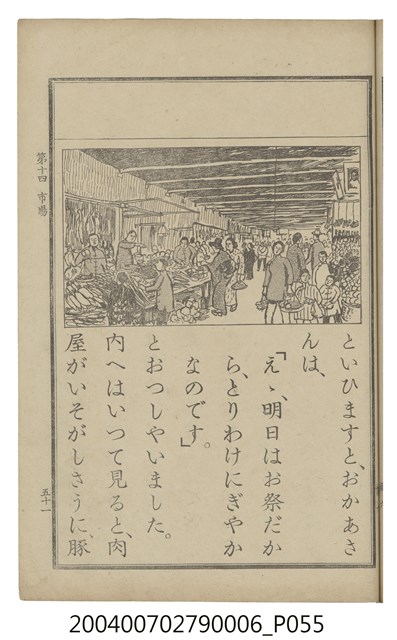 といひますと、おかあさ
んは、
「えゝ、明日はお祭だか
ら、とりわけにぎやか
なのです。」
とおつしやいました。
内へはいつて見ると、肉
屋がいそがしさうに、豚
第十四 市場
五十一
200400702790006_P055